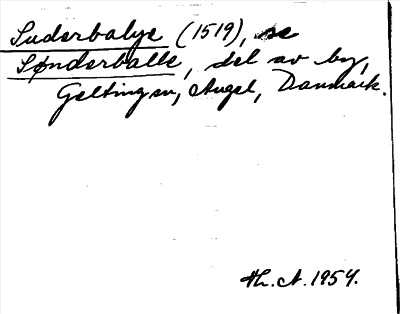 Suderbalye (1519), se
Sønderballe, del av by,
Gelting sn, Angel, Danmark.
Th. A. 1954.